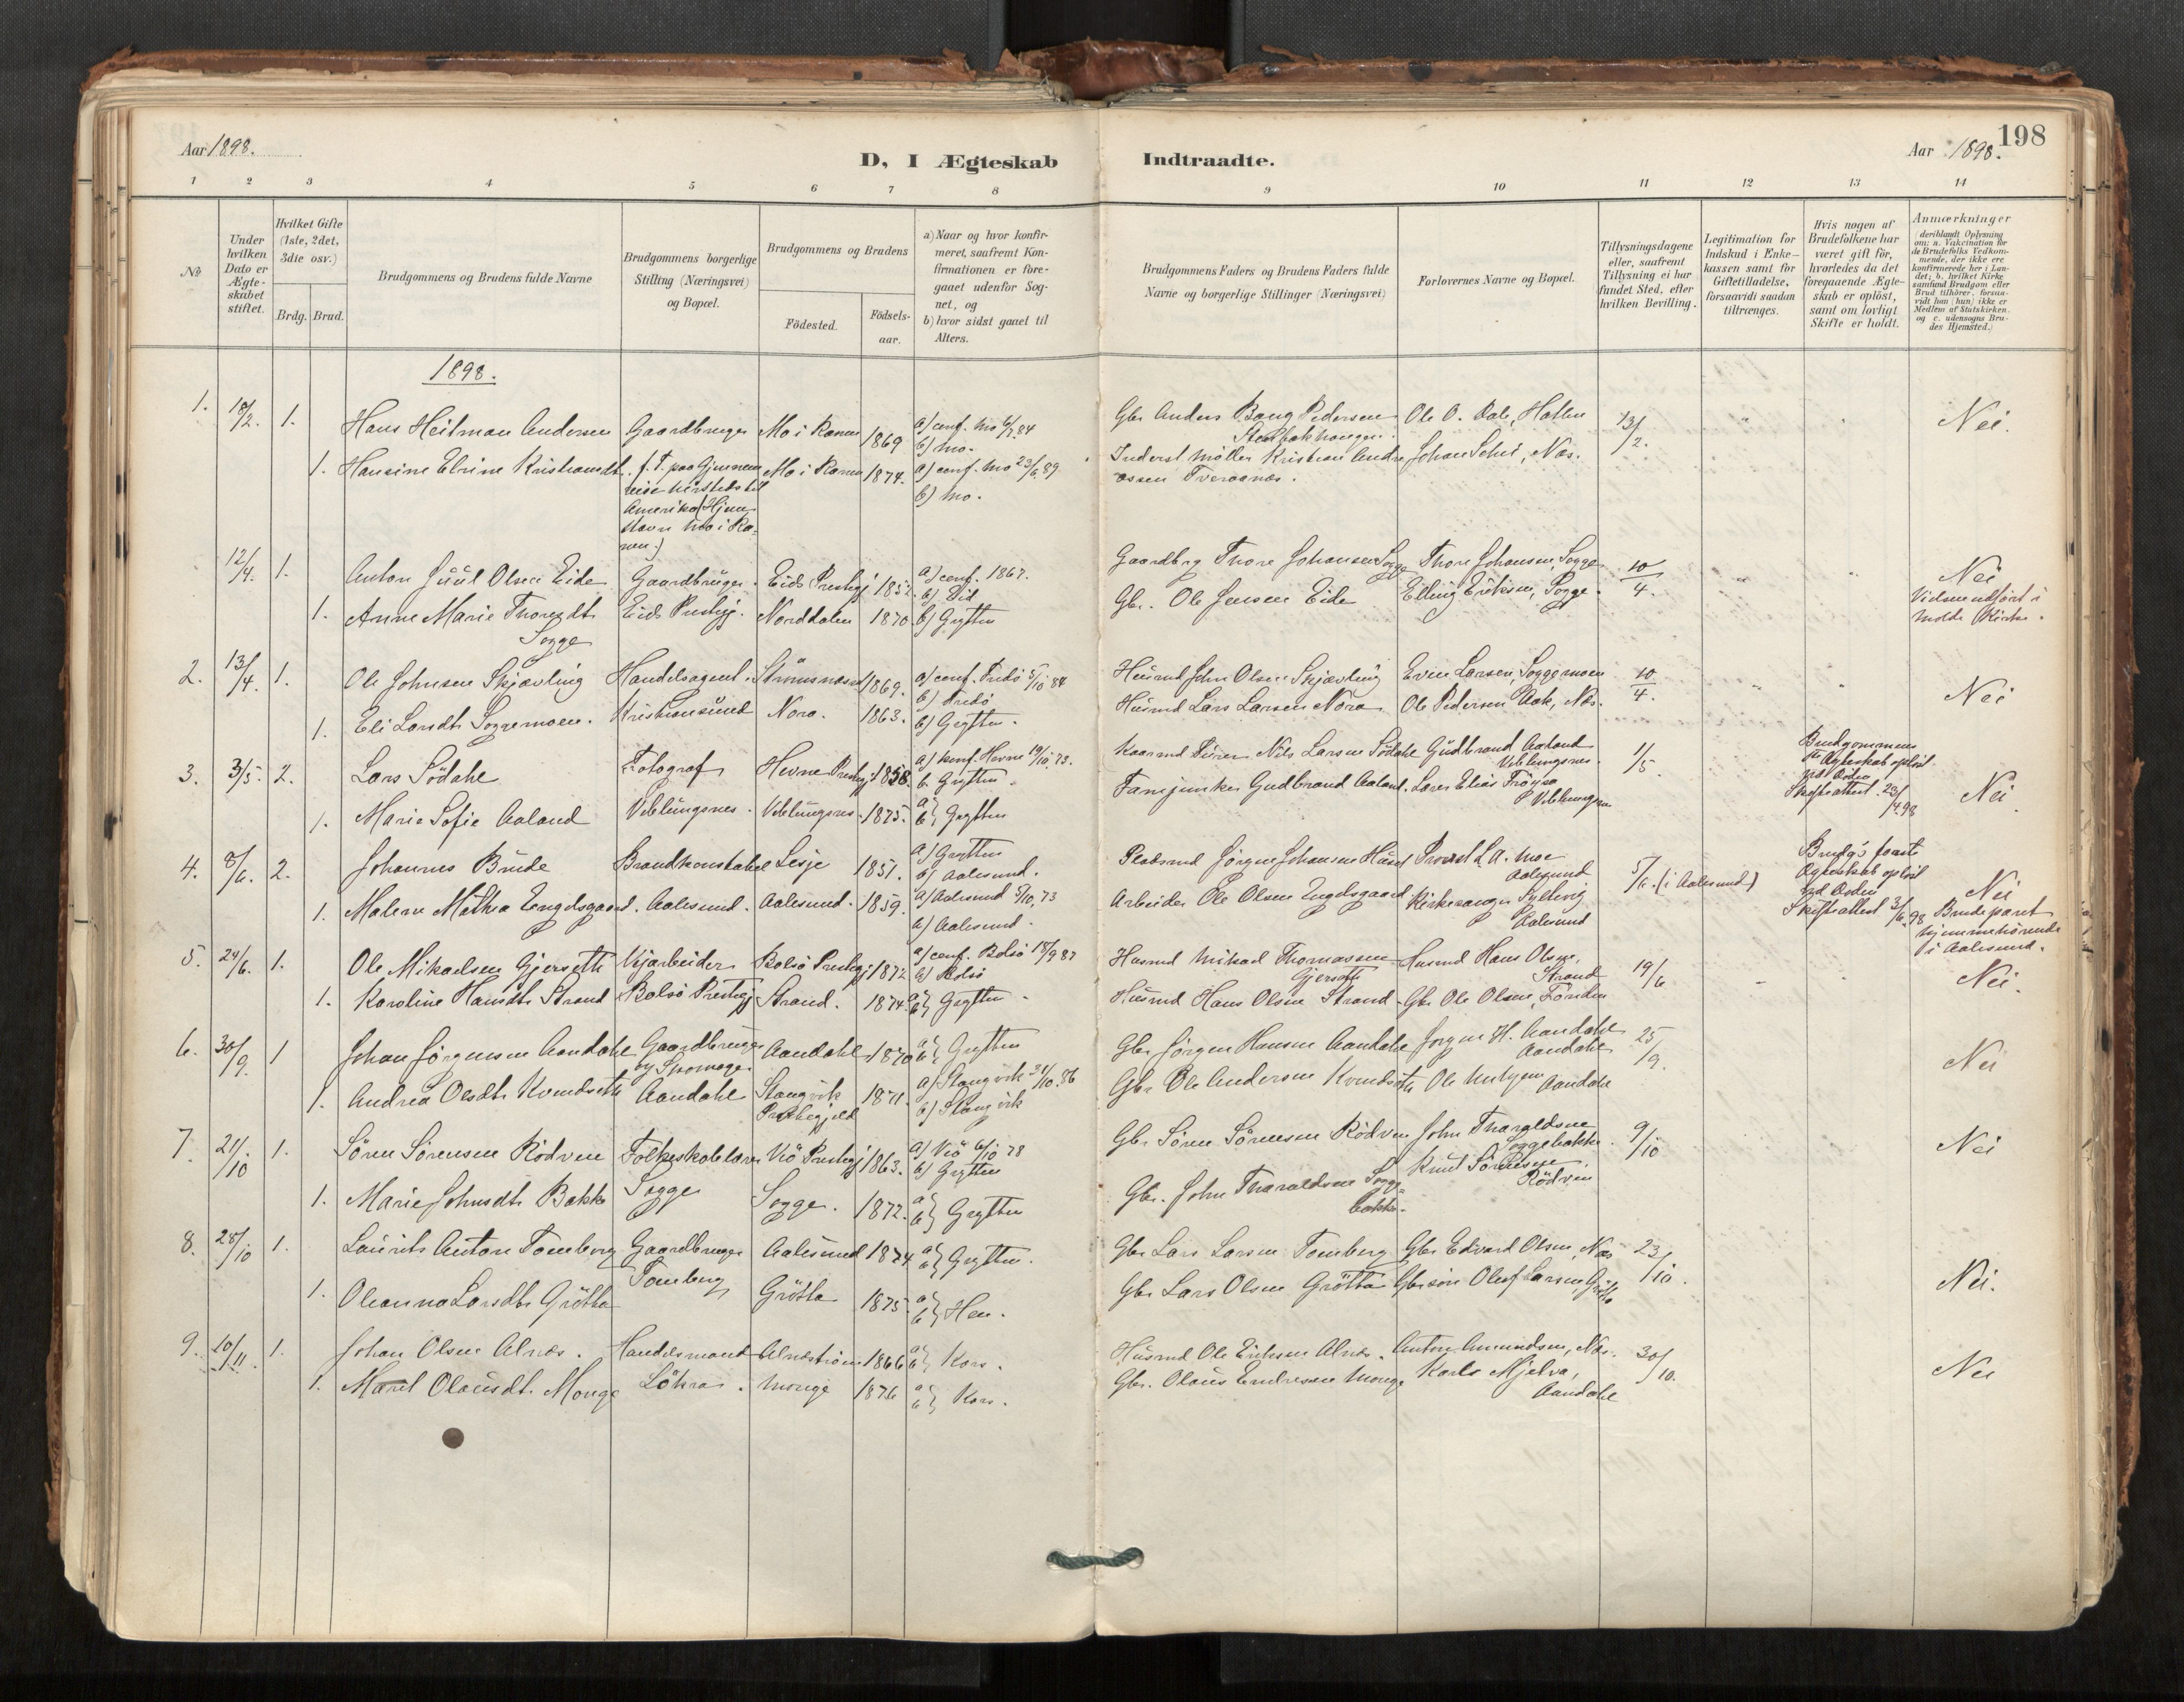 Aar 1898.
D, I Ægteskab
Indtraadte.
Aar 1898.
198
1 2 3 4 5 6 7 8 9 10 11 12 13 14
№
Under hvilken Dato er Ægteskabet stiftet.
Hvilket Gifte (1ste, 2det, 3die osv.)
Brdg. Brud.
Brudgommens og Brudens fulde Navne
Brudgommens borgerlige Stilling (Næringsvei) og Bopæl.
Brudgommens og Brudens
Födested.
Födsels-aar.
a) Naar og hvor konfirmeret, saafremt Konfirmationen er foregaaet udenfor Sognet, og
b) hvor sidst gaaet til Alters.
Brudgommens Faders og Brudens Faders fulde Navne og borgerlige Stillinger (Næringsvei)
Forlovernes Navne og Bopæl.
Tillysningsdagene eller, saafremt Tillysning ei har fundet Sted, efter hvilken Bevilling.
Legitimation for Indskud i Enkekassen samt for Giftetilladelse, forsaavidt saadan tiltrænges.
Hvis nogen af Brudefolkene har været gift för, hvorledes da det foregaaende Ægteskab er oplöst, samt om lovligt Skifte er holdt.
Anmærkninger
deriblandt Oplysning om: a. Vakcination for de Brudefolks Vedkommende, der ikke ere konfirmerede her i Landet; b. hvilket Kirkesamfund Brudgom eller Brud tilhörer, forsaavidt han (hun) ikke er Medlem af Statskirken. og c. udensogns Brudes Hjemsted.)
1898.
1. 18/2. 1. Hans Heitman Andersen Gaardbruger Mo i Ranen 1869 a) conf. Mo 84 b) Mo. Gbr Anders Bang Pedersen Ole O. Dale, Hatlen 13/2. Nei.
1. Hansine Elvine Kristiansdt. f. T. paa Gjennemreise hersteds til Amerika (Hjemstavn Mo i Ranen.) Mo i Ranen 1874. a) conf. Mo 23/6 89 b) Mo. Inderst Möller Kristian Andreassen Tveraanæs. Næs.
12/4. 1. Anton Juul Olsen Eide Gaardbruger Eids Prestgj 1852 a) conf. 1867. b) Eid Gaardbrg Thore Johansen Sogge Thore Johansen, Sogge 10/4. Nei
1. Anne Marie Thoresdt. Sogge Eids Prestgj. Norddalen 1870 b) Grytten Gbr. Ole Jensen Eide Elling Eriksen, Sogge. Vielsen udfört i Molde Kirke.
2. 13/4. 1. Ole Johnsen Skjævling Handelsagent. 1869. a) conf. 5/10 84 Husmd John Olsen Skjævling Even Larsen, Soggemoen 10/4. Nei
1. Eli Larsdt. Soggemoen. Kristiansund Nora. 1863. b) Grytten. Husmd Lars Larsen Nora Ole Pedersen Aak, Næs.
3. 3/5. 2. Lars Södahl Fotograf Hevne Prestgj 1858. a) konf. Hevne 19/10. 73. b. Grytten. Kaarmd Nils Larsen Södahl Gudbrand Aaland Veblungsnes. 1/5. Brudgommens Ægteskab oplöst ved Döden Skifteattest 23/4 98 Nei.
1. Marie Sofie Aaland Veblungsnes. Veblungsnes 1875. a b} Grytten Fanejunker Gudbrand Aaland. Lærer Elias Fröysa Veblungsnes
4. 8/6. 2. Johannes Brude Brandkonstabel Lesje 1851. a) Grytten b) Aalesund. Pladsmd Jörgen Johansen Provst L. A. Moe Aalesund 5/6. (i Aalesund) Brudg's forste Ægteskab oplöst ved Döden Skifteattest 3/6 98 Nei
1. Malene Mathea Engelsgaard. Aalesund. Aalesund. 1859. a) Aalesund 5/10, 73 b) Aalesund. Arbeider Ole Olsen Engelsgaard. Kirkesanger Sylteviq Aalesund Brudeparet hjemmehörende i Aalesund.
5. 24/6. 1. Ole Mikaelsen Gjerseth Veiarbeider Bolsö Prestegj 1872 a) conf. Bolsö 18/9 87 b) Bolsö Husmd Mikael Thomassen Gjerseth Husmd Hans Olsen, Strand 19/6 Nei.
1. Karoline Hansdt. Strand Bolsö Prestegj Strand. 1874 a b} Grytten. Husmd Hans Olsen Strand Gbr Ole Olsen,
6. 30/9. 1 Johan Jörgensen Aandahl Gaardbruger Aandahl 1870 a b} Grytten Gbr Jörgen Hansen Aandahl Jörgen H. Aandahl Aandahl 25/9. Nei
1. Andrea Olesdt. Kvendseth Aandahl Stangvik Prestegjeld 1871. a) Stangvik 31/10. 86 b) Stangvik Gbr Ole Andersen Kvendseth Ole Aandahl
7. 21/10 1. Sören Sörensen Rödven Folkeskolelærer Veö Prestegj 1863. a) Veö 6/10 78 b) Grytten Gbr Sören Sörensen Rödven John Tharaldsen Soggebakke. 9/10 Nei
1. Marie Johnsdt. Bakke Sogge Sogge. 1872. a b} Grytten Gbr. John Tharaldsen Soggebakke. Knut Sörensen, Rödven
8. 28/10 1. Laurits Anton Tomberg Gaardbruger Aalesund 1874 a b} Grytten. Gbr Lars Larsen Tomberg Gbr Edvard Olsen, Næs 23/10. Nei.
1. Oleanna Larsdt. Grötta Tomberg Grötta 1875. a b} Hen. Gbr Lars Olsen Grötta Gbr sön Oluf Larsen, Grötta
9. 10/11. 1. Johan Olsen Alnæs. Handelsmand Alnæs 1866 a b} Kors. Husmd Ole Eriksen Alnæs. Anton Amundsen, Næs. 30/10. Nei
1. Marit Olausdt. Monge Monge 1876 a b} Kors. Gbr. Olaus Endresen Monge Karls Mjelva, Aandahl